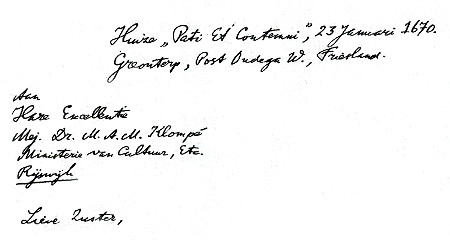 Huize „Pati Et Contemni", 23 Januari 1670.
Greonterp, Post Oudega W., Friesland.
Aan
Hare Excellentie
Mej. Dr. M. A. M. Klompé
Ministerie van Cultuur, Etc.
Rijswijk
Lieve Zuster,